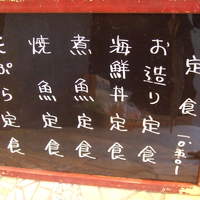 定食 一〇五〇-
お造り定食
海鮮丼定食
煮魚定食
焼魚定食
天ぷら定食